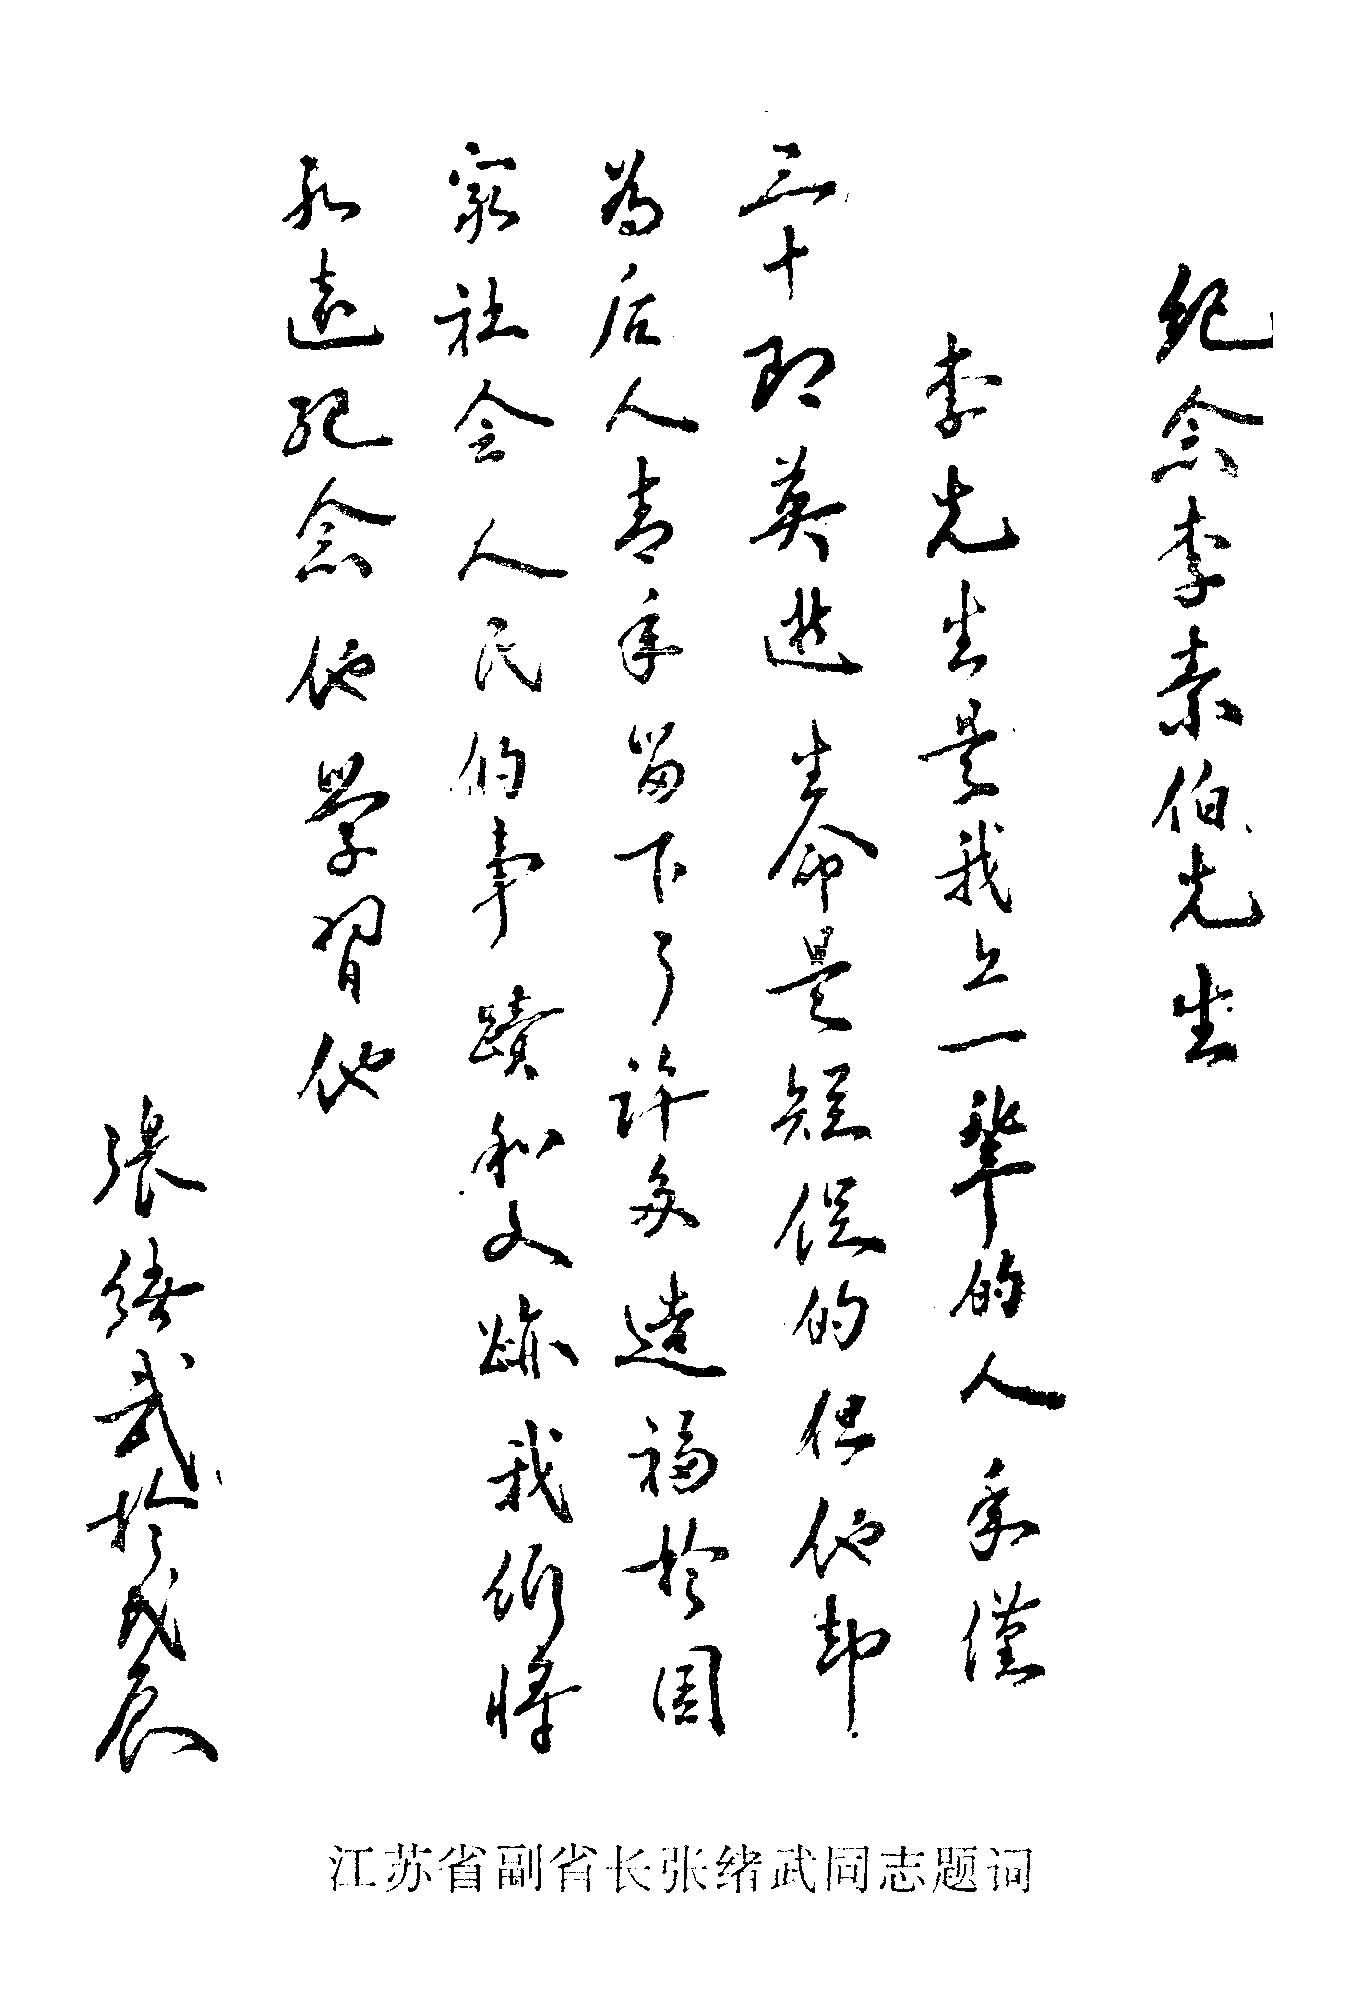 纪念李素伯先生
李先生是我上一辈的人年仅
三十即英逝生命是短促的但他却
为后人青年留下了许多造福於国
家社会人民的事蹟和文跡我们将
永远纪念他学習他
張绪武於戊辰
江苏省副省长张绪武同志题词